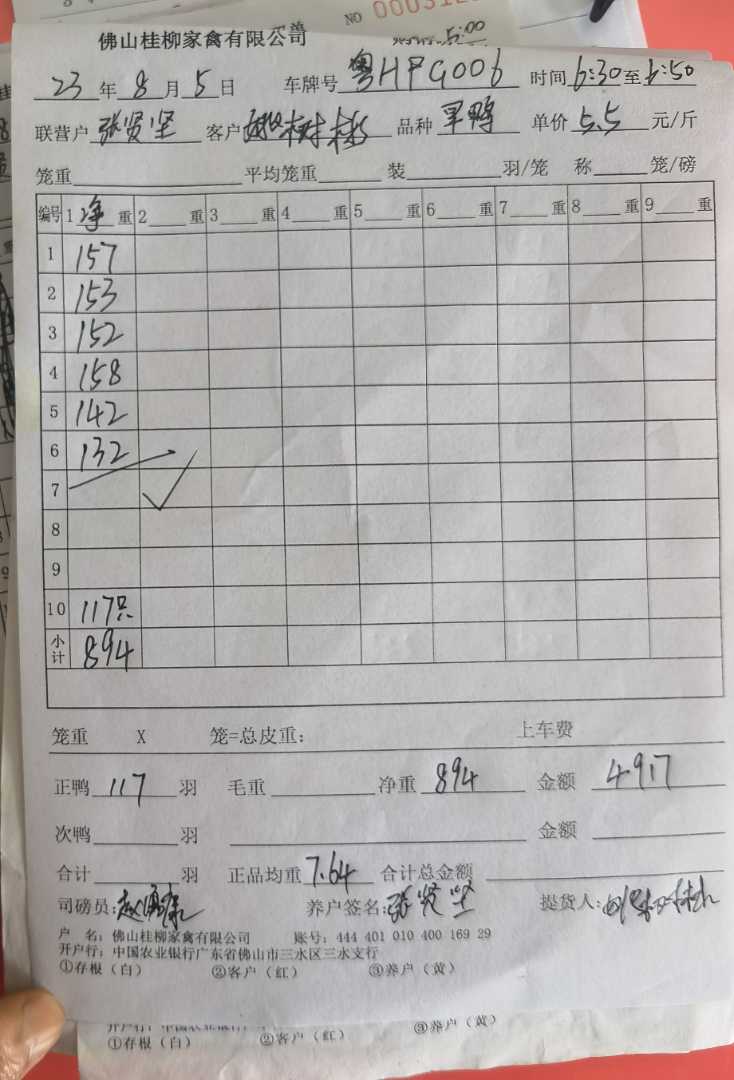 NO 000312
5:00
佛山桂柳家禽有限公司
23年8月5日 车牌号 粤HPG006 时间 6:30至6:50
联营户 张贤坚 客户 树 品种 旱鸭 单价 5.5 元/斤
笼重 平均笼重 装 羽/笼 称 笼/磅
编号 1 净 重 2 重 3 重 4 重 5 重 6 重 7 重 8 重 9 重
1 157
2 153
3 152
4 158
5 142
6 132
7
8
9
10 117只
小计 894
笼重 X 笼=总皮重: 上车费
正鸭 117 羽 毛重 净重 894 金额 4917
次鸭 羽 金额
合计 羽 正品均重 7.64 合计总金额
司磅员: 养户签名: 张贤坚 提货人:
户 名: 佛山桂柳家禽有限公司 账号: 444 401 010 400 169 29
开户行: 中国农业银行广东省佛山市三水区三水支行
①存根（白） ②客户（红） ③养户（黄）
①存根（白） ②客户（红） ③养户（黄）